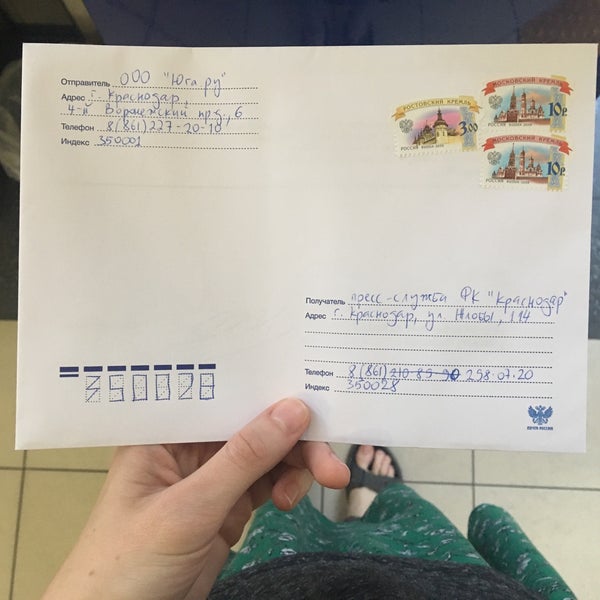 Отправитель ООО "Юга.ру"
Адрес г. Краснодар,
4-й Воронежский прд., 6
Телефон 8(861)227-20-10
Индекс 350001
РОСТОВСКИЙ КРЕМЛЬ
3.00
РОССИЯ ROSSIA 2009
МОСКОВСКИЙ КРЕМЛЬ
10 Р.
РОССИЯ ROSSIA 2009
МОСКОВСКИЙ КРЕМЛЬ
10 Р.
РОССИЯ ROSSIA 2009
Получатель пресс-служба ФК "Краснодар"
Адрес г. Краснодар, ул. Жлобы, 114
Телефон 8(861) 210-85-90 258-07-20
Индекс 350028
350028
ПОЧТА РОССИИ